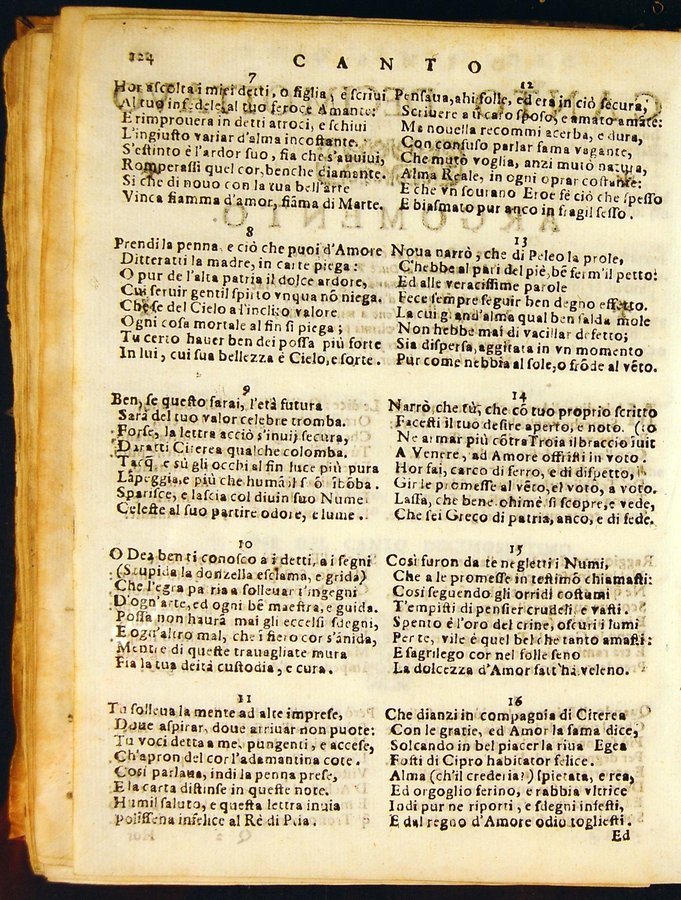 124
CANTO
7
Hor ascolta i miei detti, o figlia, e scriui
Al tuo infedele, al tuo feroce Amante:
E rimprouera in detti atroci, e schiui
L'ingiusto variar d'alma incostante.
S'estinto è l'ardor suo, fia che s'auuiui,
Romperassi quel cor, benche diamante.
Si che di nouo con la tua bell'arte
Vinca fiamma d'amor, fiãma di Marte.
8
Prendi la penna, e ciò che puoi d'Amore
Ditteratti la madre, in carte piega:
O pur de l'alta patria il dolce ardore,
Cui seruir gentil spirto vnqua nõ niega.
Chese del Cielo a l'inclito valore
Ogni cosa mortale al fin si piega;
Tu certo hauer ben dei possa più forte
In lui, cui sua bellezza è Cielo, e sorte.
9
Ben, se questo farai, l'età futura
Sarà del tuo valor celebre tromba.
Forse, la lettra acciò s'inuij secura,
Daratti Citerea qualche colomba.
Tacq, e sù gli occhi al fin luce più pura
Làpeggia, e più che humã
Sparisce, e lascia col diuin suo Nume
Celeste al suo partire odore, e lume.
10
O Dea ben ti conosco a i detti, a i segni
(Stupida la donzella esclama, e grida)
Che l'egra patria a solleuar t'ingegni
D'ogn'arte, ed ogni bẽ maestra, e guida.
Possa non haurà mai gli eccelsi sdegni,
E ogn'altro mal, che i fiero cor s'ãnida,
Mentre di queste trauagliate mura
Fia la tua deità custodia, e cura.
11
Tu solleua la mente ad alte imprese,
Doue aspirar, doue arriuar non puote:
Tu voci detta a me, pungenti, e accese,
Ch'apron del cor l'adamantina cote.
Così parlaua, indi la penna prese,
E la carta distinse in queste note.
Humil saluto, e questa lettra inuia
Polissena infelice al Rè di Ptia.
12
Pensaua, ahi folle, ed era in ciò secura,
Scriuere a ti caro sposo, e amato amãte:
Ma nouella recommi acerba, e dura,
Con confuso parlar fama vagante,
Che mutò voglia, anzi mutò natura,
Alma Reale, in ogni oprar costante:
E che vn sourano Eroe fè ciò che spesso
E biasmato pur anco in fragil sesso.
13
Noua narrò, che di Peleo la prole,
C'hebbe al pari del piè, bẽ ferm'il petto:
Ed alle veracissime parole
Fece sempre seguir ben degno effetto.
La cui grand'alma qual ben salda mole
Non hebbe mai di vacillar defetto;
Sia dispersa, aggitata in vn momento
Pur come nebbia al sole, o frõde al vẽto.
14
Narrò che tù, che cõ tuo proprio scritto
Facesti il tuo desire aperto, e noto. (to
Ne armar più cõtra Troia il braccio inuit
A Venere, ad Amore offristi in voto.
Hor fai, carco di ferro, e di dispetto,
Gir le promesse al vẽto, el voto, a voto.
Lassa, che bene ohimè si scopre, e vede,
Che sei Greco di patria, anco, e di fede.
15
Così furon da te negletti i Numi,
Che a le promesse in testimõ chiamasti:
Così seguendo gli orridi costumi
T'empisti di pensier crudeli, e vasti.
Spento è l'oro del crine, oscuri i lumi
Per te, vile è quel bel che tanto amasti:
E sagrilego cor nel folle seno
La dolcezza d'Amor fatt'ha veleno.
16
Che dianzi in compagnia di Citerea
Con le gratie, ed Amor la fama dice,
Solcando in bel piacer la riua Egea
Fosti di Cipro habitator felice.
Alma (ch'il crederia?) spietata, e rea,
Ed orgoglio ferino, e rabbia vltrice
Indi pur ne riporti, e sdegni infesti,
E dal regno d'Amore odio togliesti.
Ed